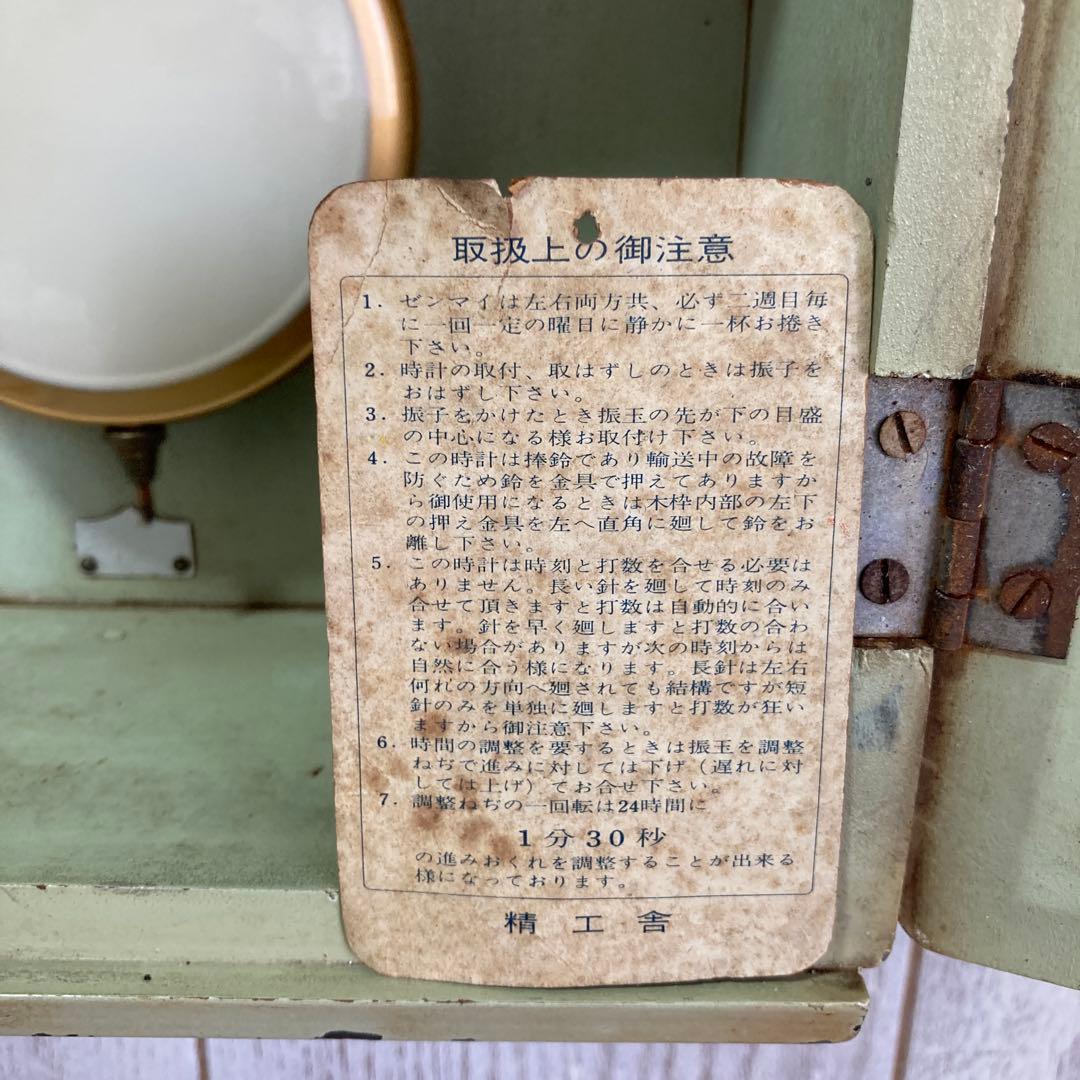 取扱上の御注意
1. ゼンマイは左右両方共、必ず二週目毎
に一回一定の曜日に静かに一杯お捲き
下さい。
2. 時計の取付、取はずしのときは振子を
おはずし下さい。
3. 振子をかけたとき振玉の先が下の目盛
の中心になる様お取付け下さい。
4. この時計は捧鈴であり輸送中の故障を
防ぐため鈴を金具で押えてありますか
ら御使用になるときは木枠内部の左下
の押え金具を左へ直角に廻して鈴をお
離し下さい。
5. この時計は時刻と打数を合せる必要は
ありません。長い針を廻して時刻のみ
合せて頂きますと打数は自動的に合い
ます。針を早く廻しますと打数の合わ
ない場合がありますが次の時刻からは
自然に合う様になります。長針は左右
何れの方向へ廻されても結構ですが短
針のみを単独に廻しますと打数が狂い
ますから御注意下さい。
6. 時間の調整を要するときは振玉を調整
ねぢで進みに対しては下げ（遅れに対
しては上げ）てお合せ下さい。
7. 調整ねぢの一回転は24時間に
1分30秒
の進みおくれを調整することが出来る
様になっております。
精工舎